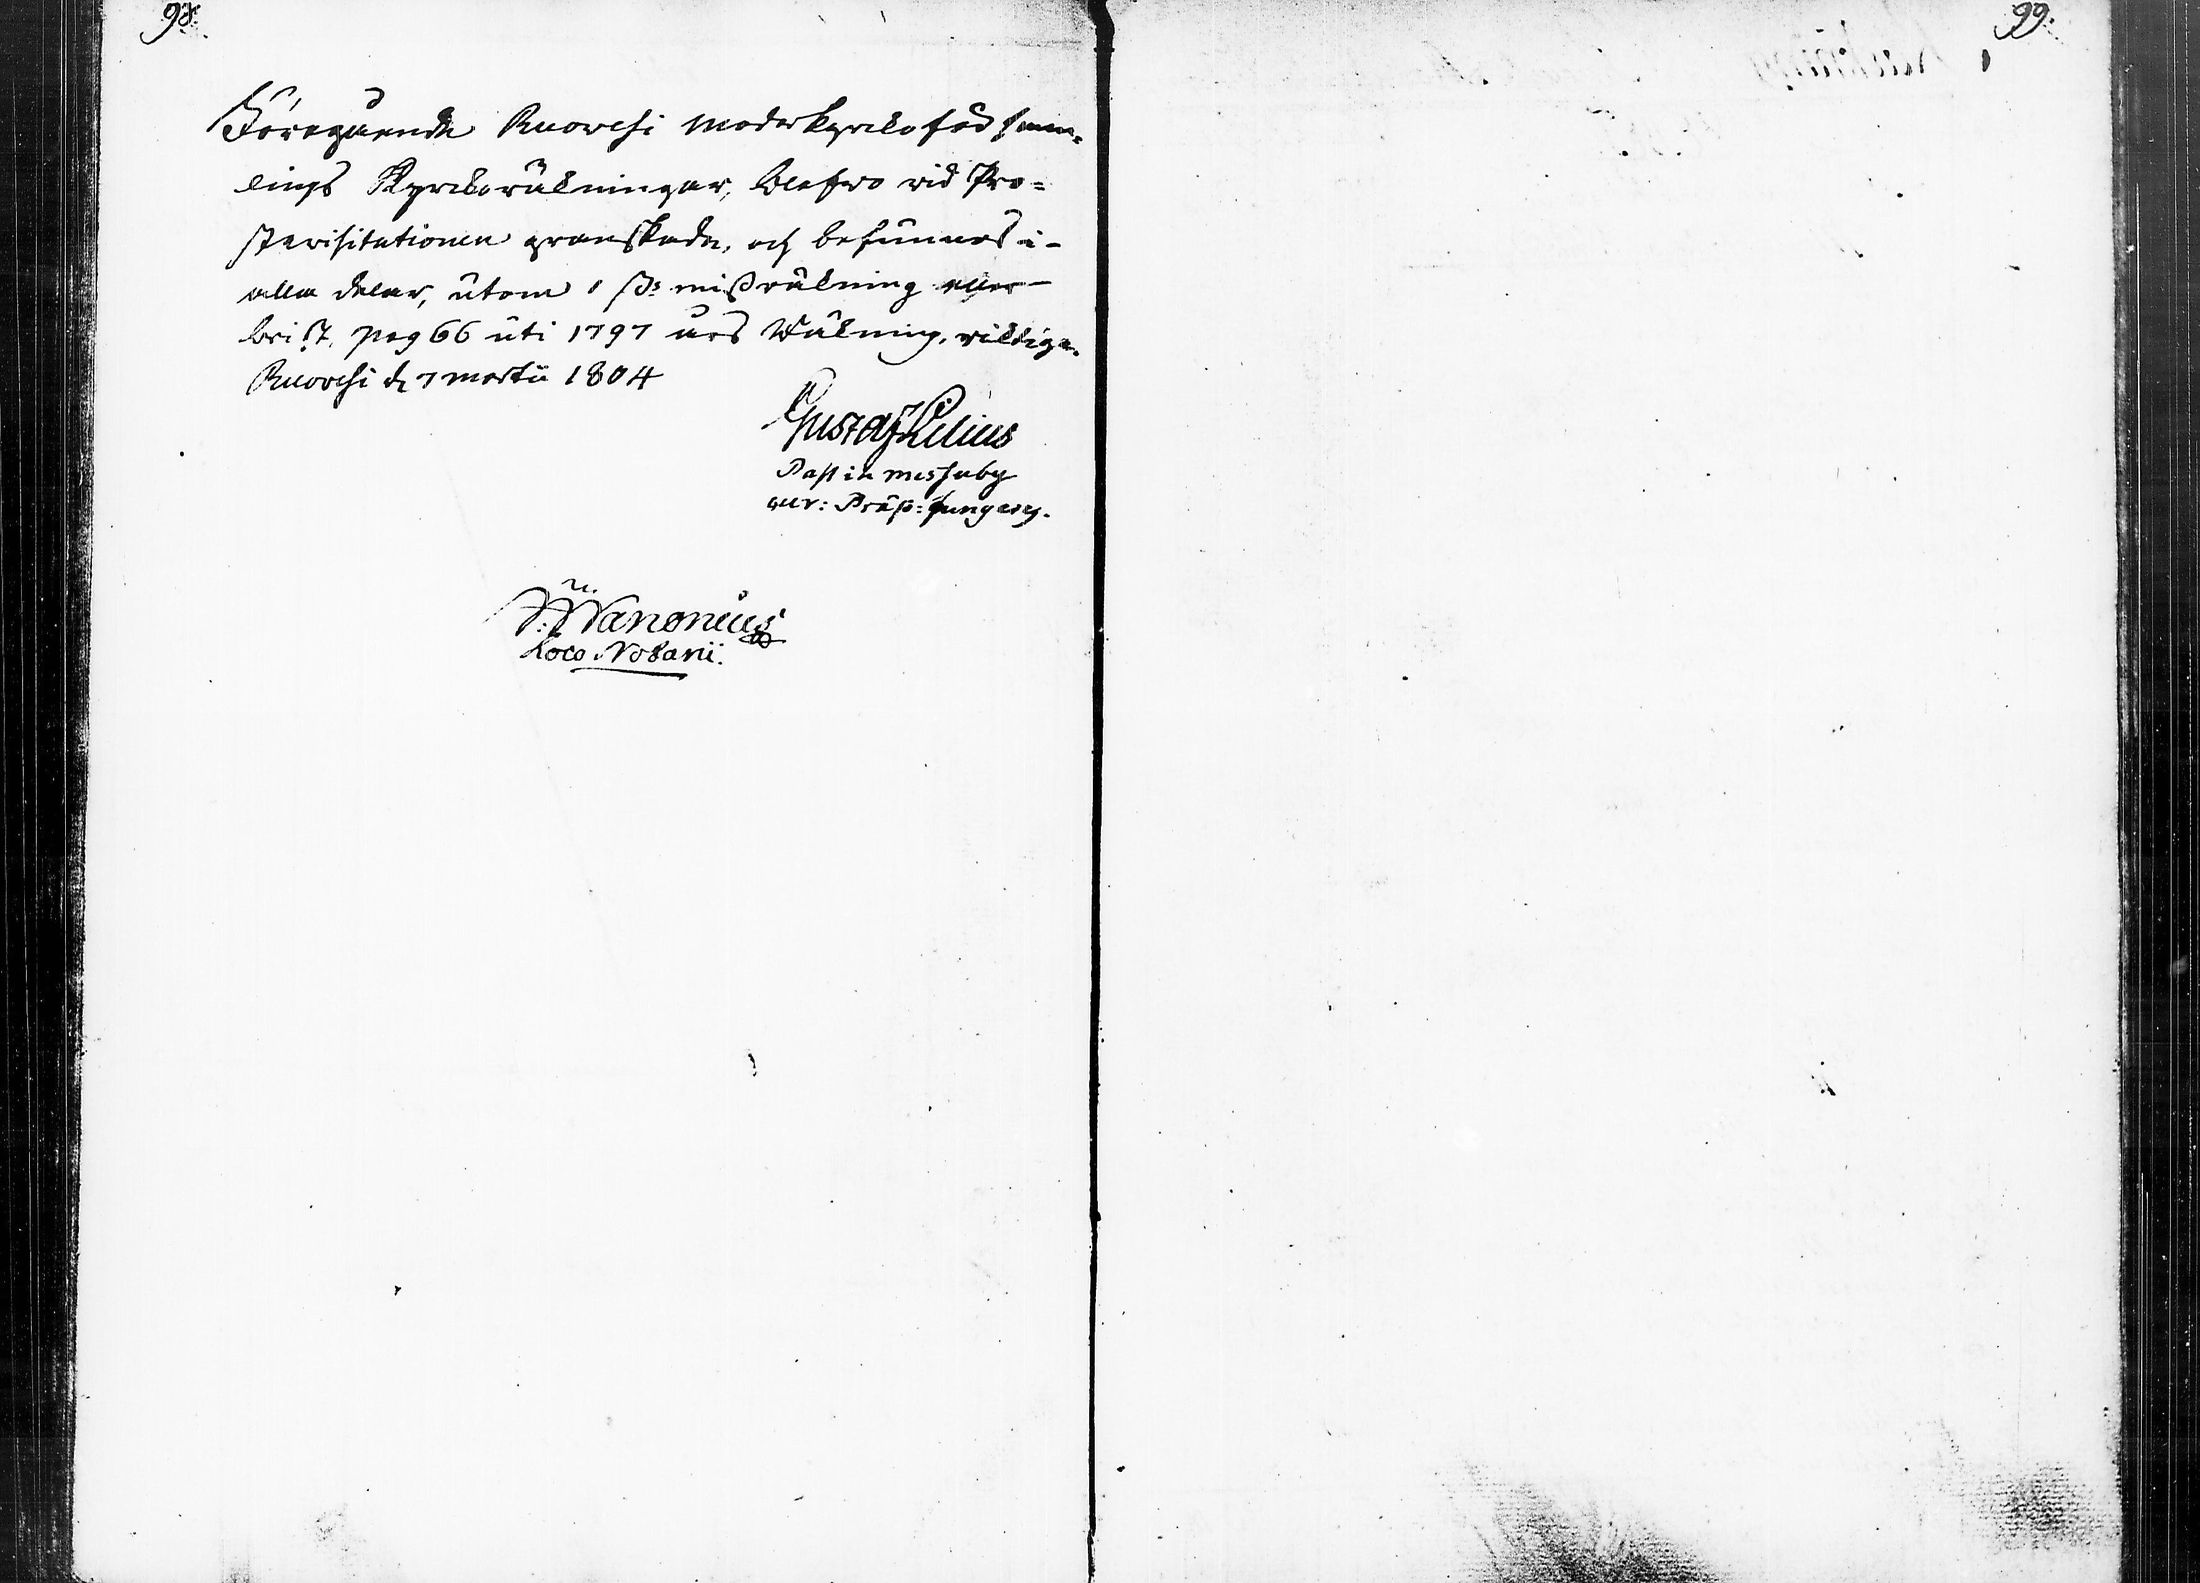 98.
Föregående Ruovesi Moderkyrkoförsam-
lings Kyrkoräkningar, blefvo vid Pro-
stevisitationen granskade, och befunnos i
alla delar, utom 1 ss missräkning eller
brist, pag 66 uti 1797 års Räkning, riktiga.
Ruovesi d 7 Martii 1804
Gustaf Lilius
Past in Messuby
Präp:
Wanonius
Loco Notarii.
99.